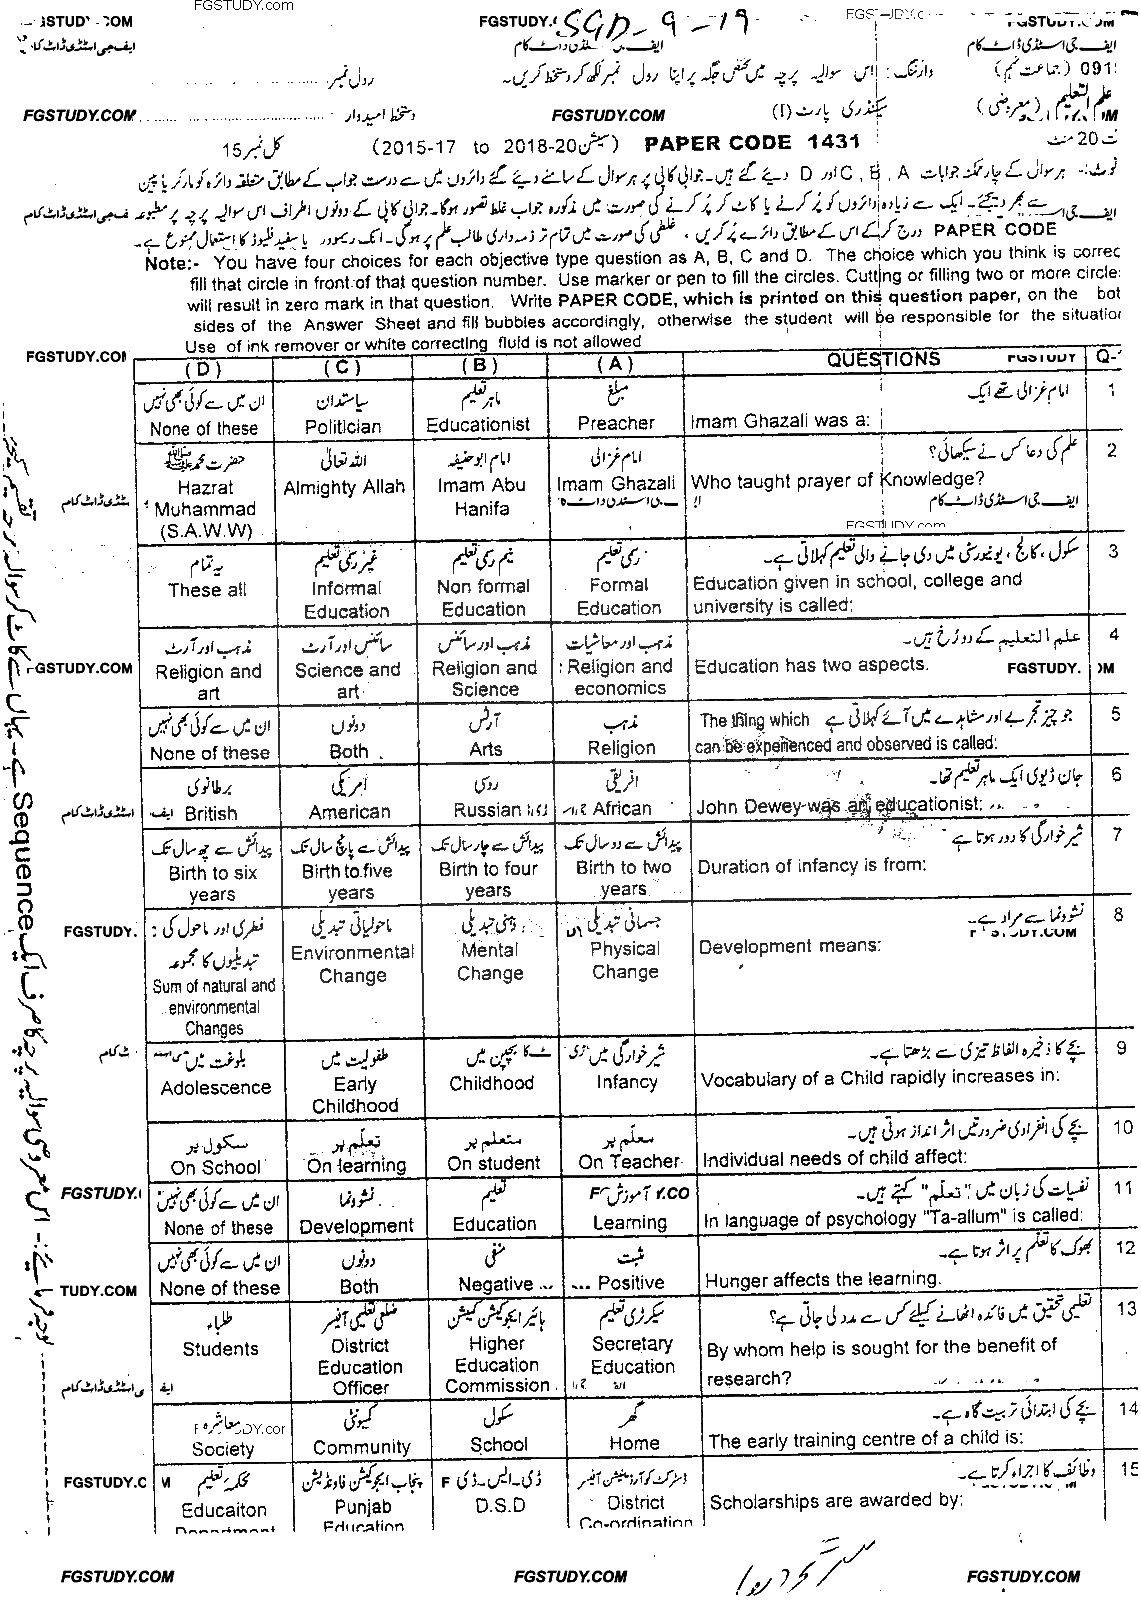 FGSTUDY.com
SGD-9-19
FGSTUDY.COM
ایف جی اسٹڈی ڈاٹ کام
وارننگ: اس سوالیہ پرچہ میں مختص جگہ پر اپنا رول نمبر لکھ کر دستخط کریں۔ رول نمبر
FGSTUDY.COM دستخط امیدوار FGSTUDY.COM سیکنڈری پارٹ (I)
PAPER CODE 1431 (2015-17 to 2018-20 سیشن) کل نمبر 15
نوٹ:- ہر سوال کے چار ممکنہ جوابات A, B, C اور D دیئے گئے ہیں۔ جوابی کاپی پر ہر سوال کے سامنے دیئے گئے دائروں میں سے درست جواب کے مطابق متعلقہ دائرہ کو مارکر یا پین
سے بھر دیجئے۔ ایک سے زیادہ دائروں کو پُر کرنے یا کاٹ کر پُر کرنے کی صورت میں مذکورہ جواب غلط تصور ہوگا۔ جوابی کاپی کے دونوں اطراف اس سوالیہ پرچہ پر مطبوعہ
PAPER CODE درج کر کے اس کے مطابق دائرے پُر کریں، غلطی کی صورت میں تمام تر ذمہ داری طالب علم پر ہوگی۔ انک ریموور یا سفید فلیوڈ کا استعمال ممنوع ہے۔
Note:- You have four choices for each objective type question as A, B, C and D. The choice which you think is correc
fill that circle in front of that question number. Use marker or pen to fill the circles. Cutting or filling two or more circle
will result in zero mark in that question. Write PAPER CODE, which is printed on this question paper, on the bot
sides of the Answer Sheet and fill bubbles accordingly, otherwise the student will be responsible for the situation
Use of ink remover or white correcting fluid is not allowed
(D) (C) (B) (A) QUESTIONS
ان میں سے کوئی بھی نہیں سیاستدان ماہر تعلیم مبلغ امام غزالی تھے ایک 1
None of these Politician Educationist Preacher Imam Ghazali was a:
حضرت محمد ﷺ اللہ تعالیٰ امام ابو حنیفہ امام غزالی علم کی دعا کس نے سیکھائی؟ 2
Hazrat Almighty Allah Imam Abu Imam Ghazali Who taught prayer of Knowledge?
Muhammad Hanifa
(S.A.W.W)
یہ تمام غیر رسمی تعلیم نیم رسمی تعلیم رسمی تعلیم سکول، کالج، یونیورسٹی میں دی جانے والی تعلیم کہلاتی ہے۔ 3
These all Informal Non formal Formal Education given in school, college and
Education Education Education university is called:
مذہب اور آرٹ سائنس اور آرٹ مذہب اور سائنس مذہب اور معاشیات علم التعلیم کے دو رُخ ہیں۔ 4
Religion and Science and Religion and Religion and Education has two aspects.
art art Science economics
ان میں سے کوئی بھی نہیں دونوں آرٹس مذہب The thing which جو چیز تجربے اور مشاہدے میں آئے کہلاتی ہے 5
None of these Both Arts Religion can be experienced and observed is called:
برطانوی امریکی روسی افریقی جان ڈیوی ایک ماہر تعلیم تھا۔ 6
British American Russian African John Dewey was an educationist:
پیدائش سے چھ سال تک پیدائش سے پانچ سال تک پیدائش سے چار سال تک پیدائش سے دو سال تک شیر خوارگی کا دور ہوتا ہے 7
Birth to six Birth to five Birth to four Birth to two Duration of infancy is from:
years years years years
فطری اور ماحول کی ماحولیاتی تبدیلی ذہنی تبدیلی جسمانی تبدیلی نشوونما سے مراد ہے۔ 8
تبدیلیوں کا مجموعہ Environmental Mental Physical Development means:
Sum of natural and Change Change Change
environmental
Changes
بلوغت میں طفولیت میں بچپن میں شیر خوارگی میں بچے کا ذخیرہ الفاظ تیزی سے بڑھتا ہے۔ 9
Adolescence Early Childhood Infancy Vocabulary of a Child rapidly increases in:
Childhood
سکول پر تعلّم پر متعلم پر معلّم پر بچے کی انفرادی ضرورتیں اثر انداز ہوتی ہیں۔ 10
On School On learning On student On Teacher Individual needs of child affect:
ان میں سے کوئی بھی نہیں نشوونما تعلیم آموزش نفسیات کی زبان میں "تعلّم" کہتے ہیں۔ 11
None of these Development Education Learning In language of psychology "Ta-allum" is called:
ان میں سے کوئی بھی نہیں دونوں منفی مثبت بھوک کا تعلّم پر اثر ہوتا ہے۔ 12
None of these Both Negative Positive Hunger affects the learning.
طلباء ضلعی تعلیمی آفیسر ہائیر ایجوکیشن کمیشن سیکرٹری تعلیم تعلیمی تحقیق میں فائدہ اٹھانے کیلئے کس سے مدد لی جاتی ہے؟ 13
Students District Higher Secretary By whom help is sought for the benefit of
Education Education Education research?
Officer Commission
معاشرہ کمیونٹی سکول گھر بچے کی ابتدائی تربیت گاہ ہے۔ 14
Society Community School Home The early training centre of a child is:
محکمہ تعلیم پنجاب ایجوکیشن فاؤنڈیشن ڈی۔ایس۔ڈی ڈسٹرکٹ کوآرڈینیشن آفیسر وظائف کا اجراء کرتا ہے۔ 15
Educaiton Punjab D.S.D District Scholarships are awarded by:
Department Education Co-ordination
FGSTUDY.COM FGSTUDY.COM FGSTUDY.COM